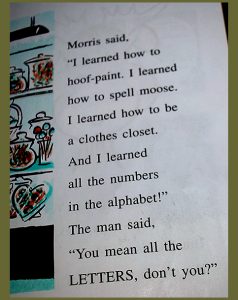 Morris said,
"I learned how to
hoof-paint. I learned
how to spell moose.
I learned how to be
a clothes closet.
And I learned
all the numbers
in the alphabet!"
The man said,
"You mean all the
LETTERS, don't you?"